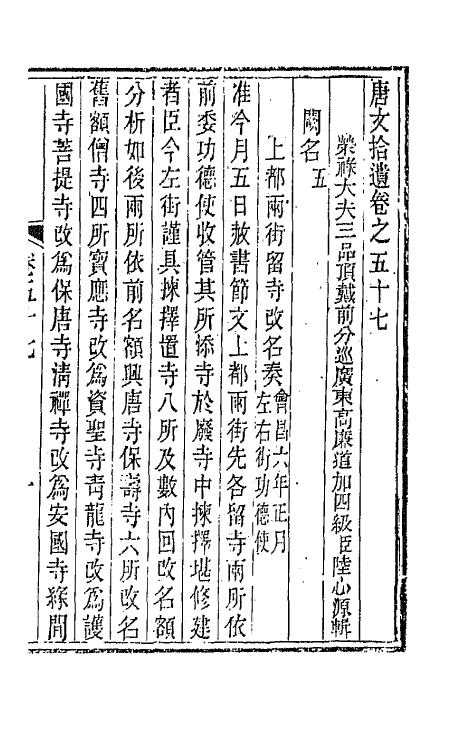 唐文拾遺卷之五十七
榮祿大夫三品頂戴前分巡廣東高廉道加四級臣陸心源輯
闕名五
上都兩街留寺改名奏會昌六年正月左右街功德使
准今月五日赦書節文上都兩街先各留寺兩所依
前委功德使收管其所添寺於廢寺中揀擇堪修建
者臣今左街謹具揀擇置寺八所及數內回改名額
分析如後兩所依前名額興唐寺保壽寺六所改名
舊額僧寺四所寶應寺改爲資聖寺靑龍寺改爲護
國寺菩提寺改爲保唐寺淸禪寺改爲安國寺緣間
卷五十七
一